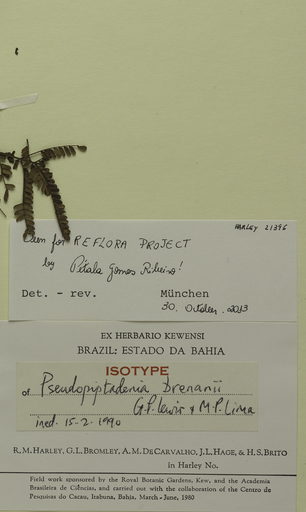 HARLEY 21396
Seen for REFLORA PROJECT
by Pétala Gomes Ribeiro!
Det. - rev. München
30. October. 2013
EX HERBARIO KEWENSI
BRAZIL: ESTADO DA BAHIA
ISOTYPE
of Pseudopiptadenia brenanii
G.P. Lewis & M.P. Lima
ined. 15-2-1990
R. M. HARLEY, G. L. BROMLEY, A. M. DE CARVALHO, J. L. HAGE, & H. S. BRITO
in Harley No.
Field work sponsored by the Royal Botanic Gardens, Kew, and the Academia
Brasileira de Ciências, and carried out with the collaboration of the Centro de
Pesquisas do Cacau, Itabuna, Bahia, March - June, 1980